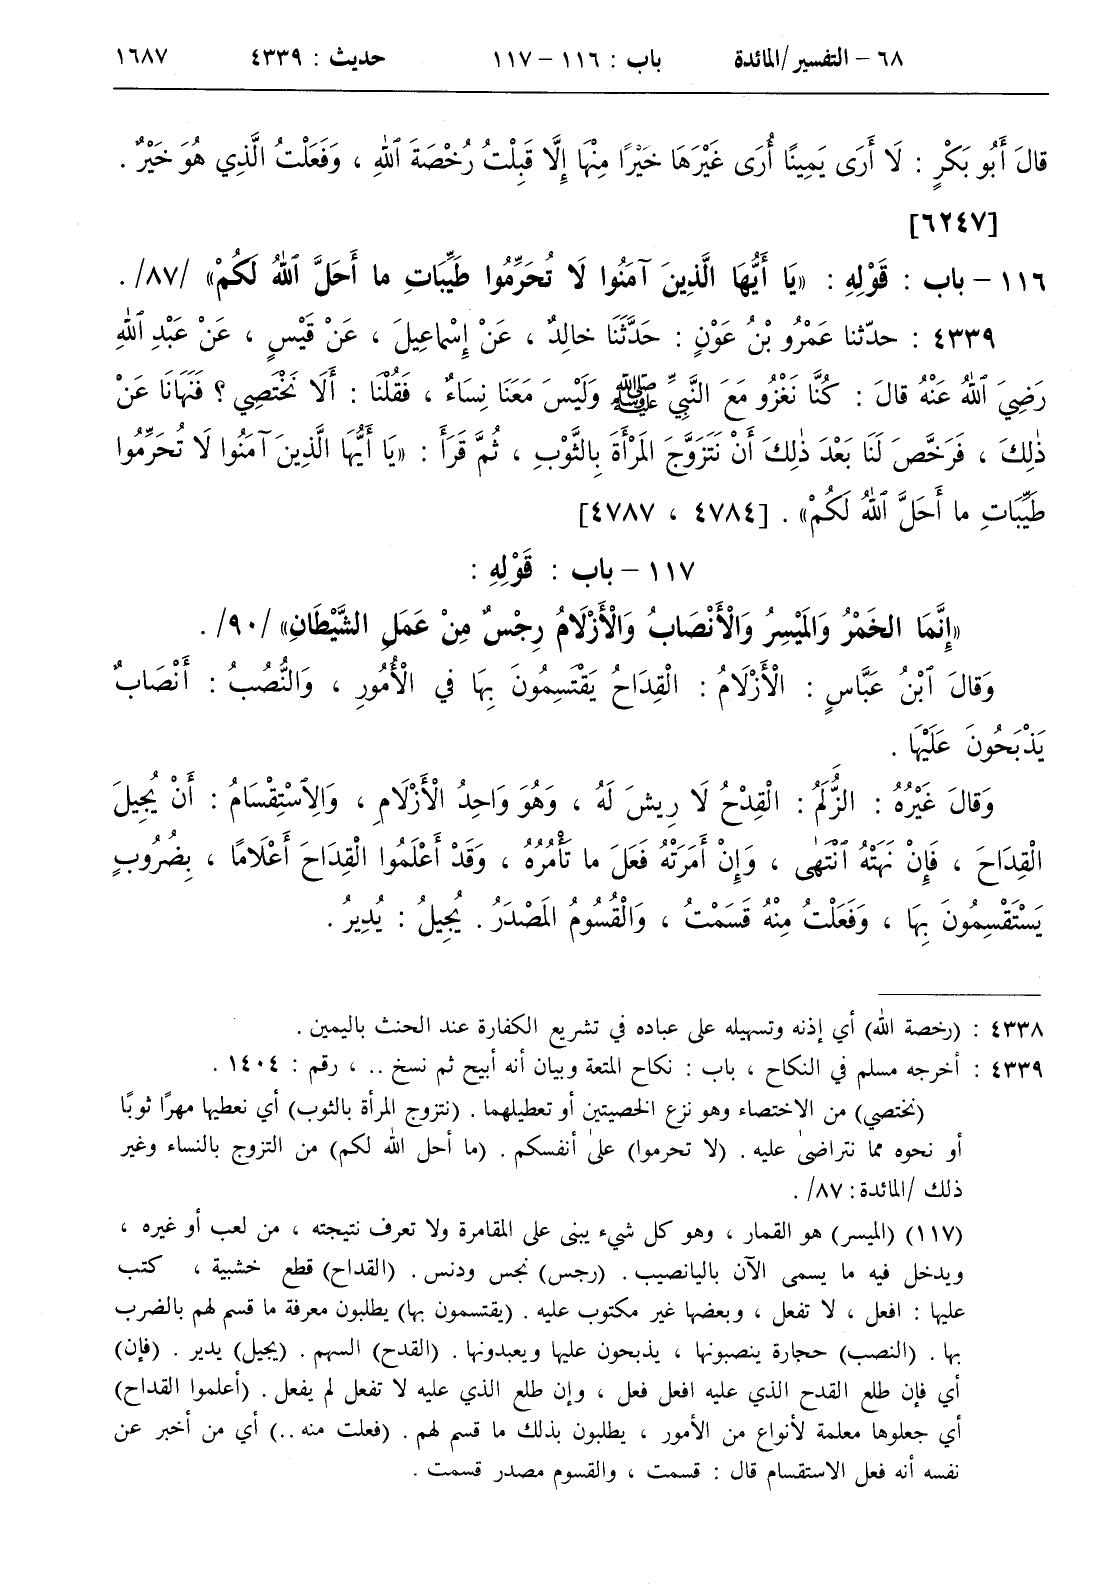 ٦٨ – التفسير/المائدة باب : ١١٦ – ١١٧ حديث : ٤٣٣٩ ١٦٨٧
قالَ أَبُو بَكْرٍ : لَا أَرَى يَمِينًا أُرَى غَيْرَهَا خَيْرًا مِنْهَا إِلَّا قَبِلْتُ رُخْصَةَ ٱللهِ ، وَفَعَلْتُ الَّذِي هُوَ خَيْرٌ .
[٦٢٤٧]
١١٦ – باب : قَوْلِهِ : «يَا أَيُّهَا الَّذِينَ آمَنُوا لَا تُحَرِّمُوا طَيِّبَاتِ ما أَحَلَّ ٱللهُ لَكُمْ» /٨٧/ .
٤٣٣٩ : حدّثنا عَمْرُو بْنُ عَوْنٍ : حَدَّثَنَا خالِدٌ ، عَنْ إِسْماعِيلَ ، عَنْ قَيْسٍ ، عَنْ عَبْدِ ٱللهِ
رَضِيَ ٱللهُ عَنْهُ قالَ : كُنَّا نَغْزُو مَعَ النَّبِيِّ ﷺ وَلَيْسَ مَعَنَا نِسَاءٌ ، فَقُلْنَا : أَلَا نَخْتَصِي ؟ فَنَهَانَا عَنْ
ذٰلِكَ ، فَرَخَّصَ لَنَا بَعْدَ ذٰلِكَ أَنْ نَتَزَوَّجَ المَرْأَةَ بِالثَّوْبِ ، ثُمَّ قَرَأَ : «يَا أَيُّهَا الَّذِينَ آمَنُوا لَا تُحَرِّمُوا
طَيِّبَاتِ ما أَحَلَّ ٱللهُ لَكُمْ» . [٤٧٨٤ ، ٤٧٨٧]
١١٧ – باب : قَوْلِهِ :
«إِنَّمَا الخَمْرُ وَالمَيْسِرُ وَالْأَنْصَابُ وَالْأَزْلَامُ رِجْسٌ مِنْ عَمَلِ الشَّيْطَانِ» /٩٠/ .
وَقالَ ٱبْنُ عَبَّاسٍ : الْأَزْلَامُ : الْقِدَاحُ يَقْتَسِمُونَ بِهَا في الْأُمُورِ ، وَالنُّصُبُ : أَنْصَابٌ
يَذْبَحُونَ عَلَيْهَا .
وَقالَ غَيْرُهُ : الزُّلَمُ : الْقِدْحُ لَا رِيشَ لَهُ ، وَهُوَ وَاحِدُ الْأَزْلَامِ ، وَالِٱسْتِقْسَامُ : أَنْ يُجِيلَ
الْقِدَاحَ ، فَإِنْ نَهَتْهُ ٱنْتَهٰى ، وَإِنْ أَمَرَتْهُ فَعَلَ ما تَأْمُرُهُ ، وَقَدْ أَعْلَمُوا الْقِدَاحَ أَعْلَامًا ، بِضُرُوبٍ
يَسْتَقْسِمُونَ بِهَا ، وَفَعَلْتُ مِنْهُ قَسَمْتُ ، وَالْقُسُومُ المَصْدَرُ . يُجِيلُ : يُدِيرُ .
٤٣٣٨ : (رخصة الله) أي إذنه وتسهيله على عباده في تشريع الكفارة عند الحنث باليمين .
٤٣٣٩ : أخرجه مسلم في النكاح ، باب : نكاح المتعة وبيان أنه أبيح ثم نسخ .. ، رقم : ١٤٠٤ .
(نختصي) من الاختصاء وهو نزع الخصيتين أو تعطيلهما . (نتزوج المرأة بالثوب) أي نعطيها مهرًا ثوبًا
أو نحوه مما نتراضىٰ عليه . (لا تحرموا) علىٰ أنفسكم . (ما أحل الله لكم) من التزوج بالنساء وغير
ذلك /المائدة: ٨٧/ .
(١١٧) (الميسر) هو القمار ، وهو كل شيء يبنى على المقامرة ولا تعرف نتيجته ، من لعب أو غيره ،
ويدخل فيه ما يسمى الآن باليانصيب . (رجس) نجس ودنس . (القداح) قطع خشبية ، كتب
عليها : افعل ، لا تفعل ، وبعضها غير مكتوب عليه . (يقتسمون بها) يطلبون معرفة ما قسم لهم بالضرب
بها . (النصب) حجارة ينصبونها ، يذبحون عليها ويعبدونها . (القدح) السهم . (يجيل) يدير . (فإن)
أي فإن طلع القدح الذي عليه افعل فعل ، وإن طلع الذي عليه لا تفعل لم يفعل . (أعلموا القداح)
أي جعلوها معلمة لأنواع من الأمور ، يطلبون بذلك ما قسم لهم . (فعلت منه ..) أي من أخبر عن
نفسه أنه فعل الاستقسام قال : قسمت ، والقسوم مصدر قسمت .